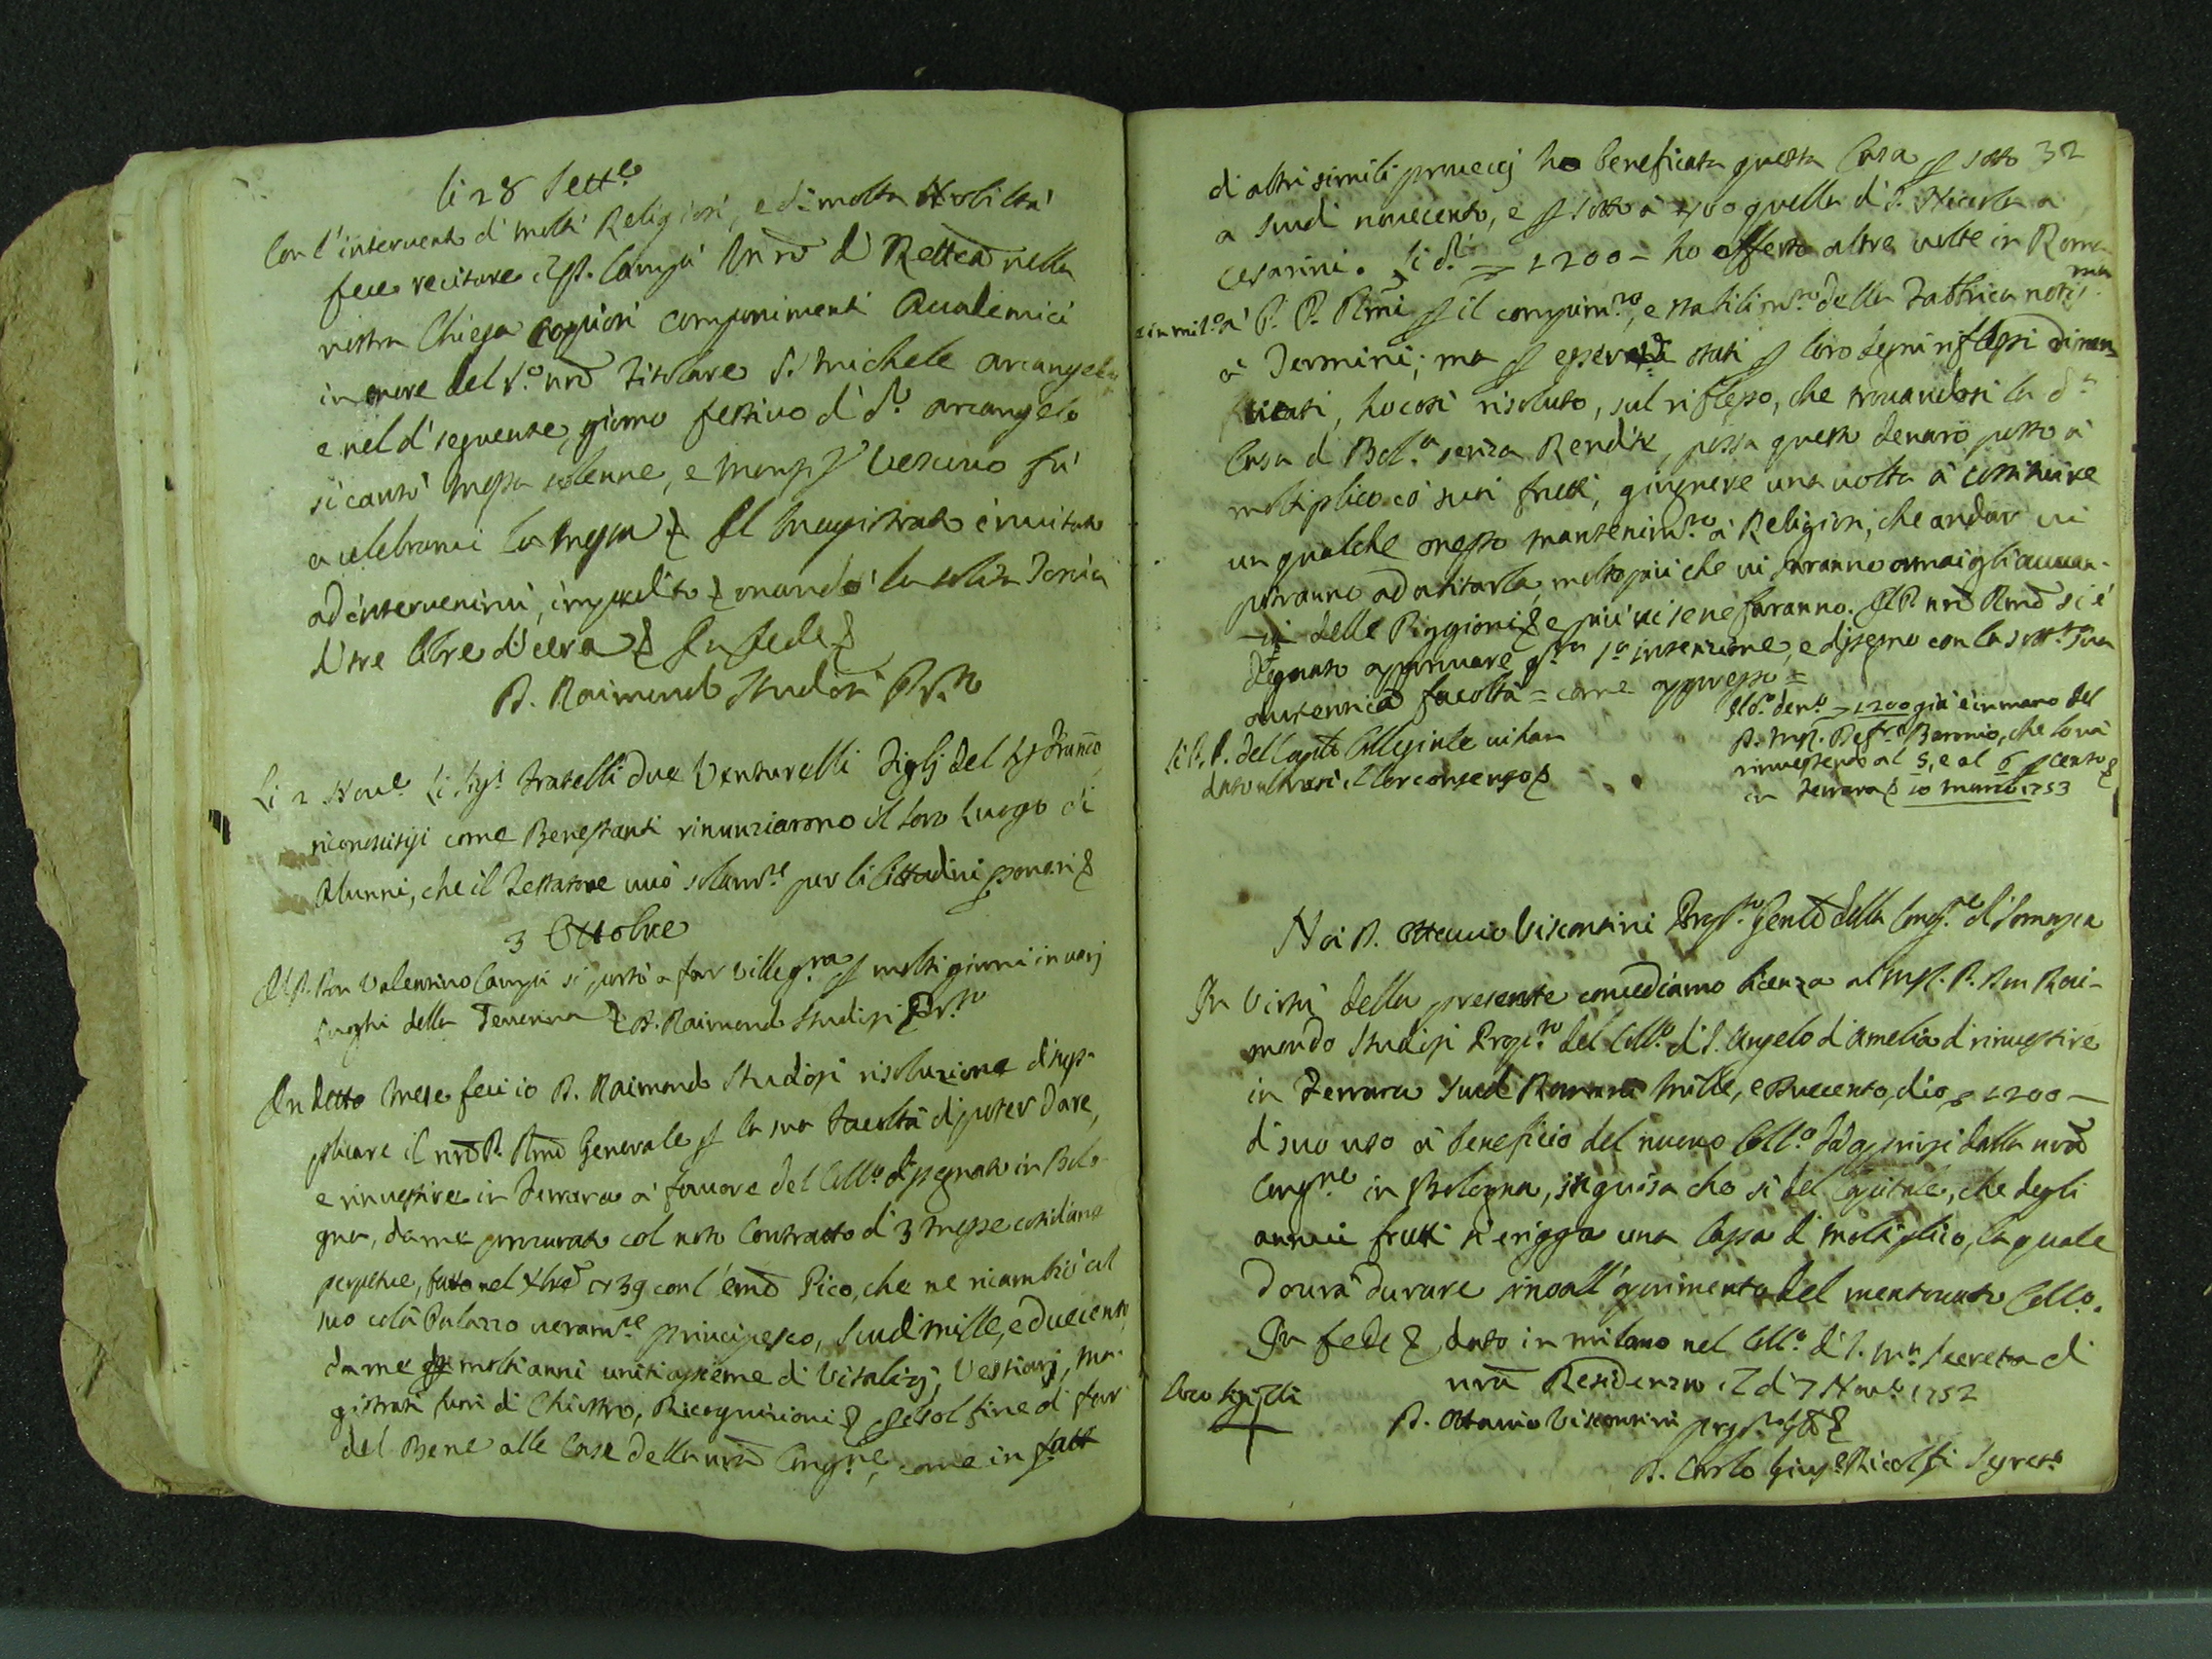 li 28 Sett.e
Con l'intervento di molti Religiosi, e di molta Nobiltà
fece recitare il P. Campi nrõ di Rettca nella
nostra Chiesa copiosi componimenti Academici
in onore del S.o nrõ Titolare S. Michele arcangelo
e nel dì seguente, giorno festivo di d.o arcangelo
si cantò Messa solenne, e Monsig.r Vescovo fù
a celebrarvi la Messa Il Magistrato invitato
ad intervenirvi, impedito mandò la solita
di tre libre di cera In fede
D. Raimondo Studiosi
Li 2 Nov.e Li Sig.ri Fratelli due Venturelli Figlj del Franco
riconosciutisi come Benestanti rinunziarono il loro Luogo di
Alunni, che il Testatore vuò solam.te per li Cittadini poveri
3 Ottobre
Il P. Don Valentino Campi si portò a far villeg.ra p molti giorni in varj
Luoghi della Teverina D. Raimondo Studiosi
In detto Mese feci io D. Raimondo Studiosi risoluzione di sup-
plicare il nrõ P. Rmõ Generale p la sua Facoltà di poter dare,
e rinvestire in Ferrara à favore del Coll.o disegnato in Bolo-
gna, da me procurato col noto Contratto di 3 Messe cotidiane
perpetue, fatto nel 1739 con l'emõ Pico, che ne ricambiò col
suo colà Palazzo veram.te principesco, Scudi mille, e duecento,
da me molti anni uniti assieme di Vitalizj, Vestiarj, Ma-
gistrati fuori di Chiostro, Ricognizioni sol fine di far
del Bene alle Case della nrã Cong.ne, come in fatt
32
di altri simili proveccj ho beneficata questa Casa p sotto
a Scudi novecento, e p sotto à quella di S. Nicola a
Cesarini. Li d.i 1200 = ho offerto altre volte in Roma
à P. P. Rmi p il compim.to, e stabilim.to della Fabbrica
à Termini; ma p essere stati p loro degni riflessi
ho così risoluto, sul riflesso, che trovandosi la d.a
Casa di Bol.a senza Rendite, possa questo denaro posto à
moltiplico có suoi frutti, giugnere una volta à costituire
un qualche onesto mantenim.to à Religiosi, che andar vi
potranno ad abitarla, molto più che vi saranno omai gli avvan-
zi delle Piggioni e più vi se ne faranno. Il P. nrõ Rmõ si è
degnato approvare q.sta intenzione, e disegno con la sua
autentica facoltà = come appresso =
Il d.o den.o 1200 già è in mano del
D. Baronio, che lo và
rinvestendo al 5, e al 6 p cento
in Ferrara 10 marzo 1753
Li P. P. del Capitolo Collegiale vi han
dato il lor consenso
Noi D. Ottavio Viscontini Prep.to Genlẽ della Cong.ne di Somasca
In Virtù della presente concediamo licenza al P. Don Rai-
mondo Studiosi Prep.to del Coll.o di S. Angelo di Amelia di rinvestire
in Ferrara Scudi Romani Mille, e Duecento, dico 1200 —
di suo uso à beneficio del nuovo Coll.o da aprirsi dalla nrã
Cong.ne in Bologna, in guisa che sì del Capitale, che degli
annui frutti si erigga una Cassa di moltiplico, la quale
dourà durare sino all'aprimento del mentovato Coll.o.
In fede dato in Milano nel Coll.o di S. M.a Secreta di
nrã Residenza il dì 7 Nov.e 1752
Loco Sigilli
D. Ottavio Viscontini
D. Carlo Gius.e Ricolfi Segret.o